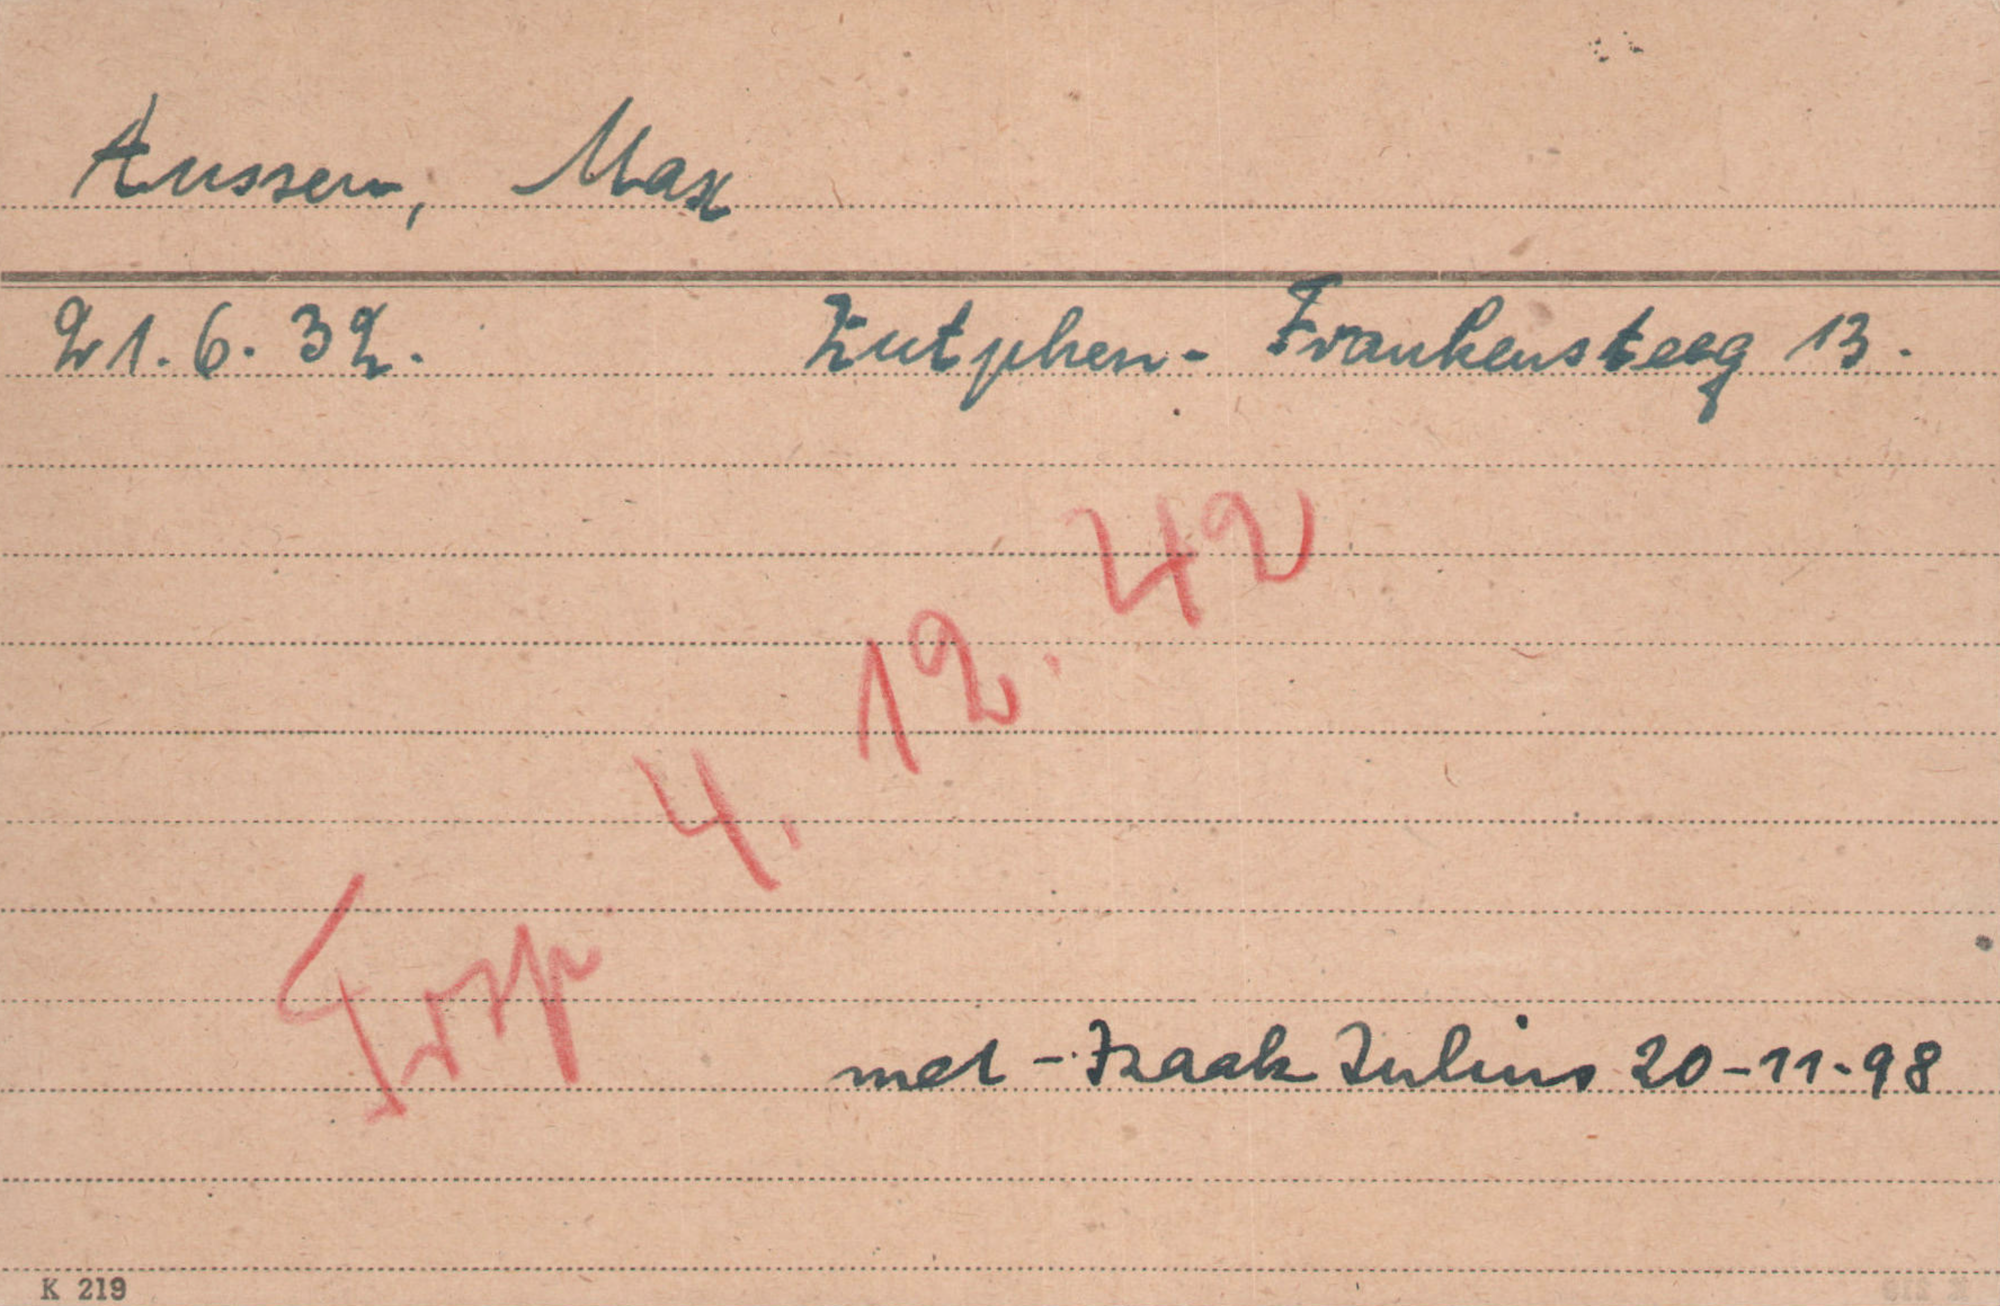 Aussen, Max
21.6.32. Zutphen - Frankensteeg 13.
Trsp 4. 12. 42
met - Izaak Julius 20-11-98
K 219